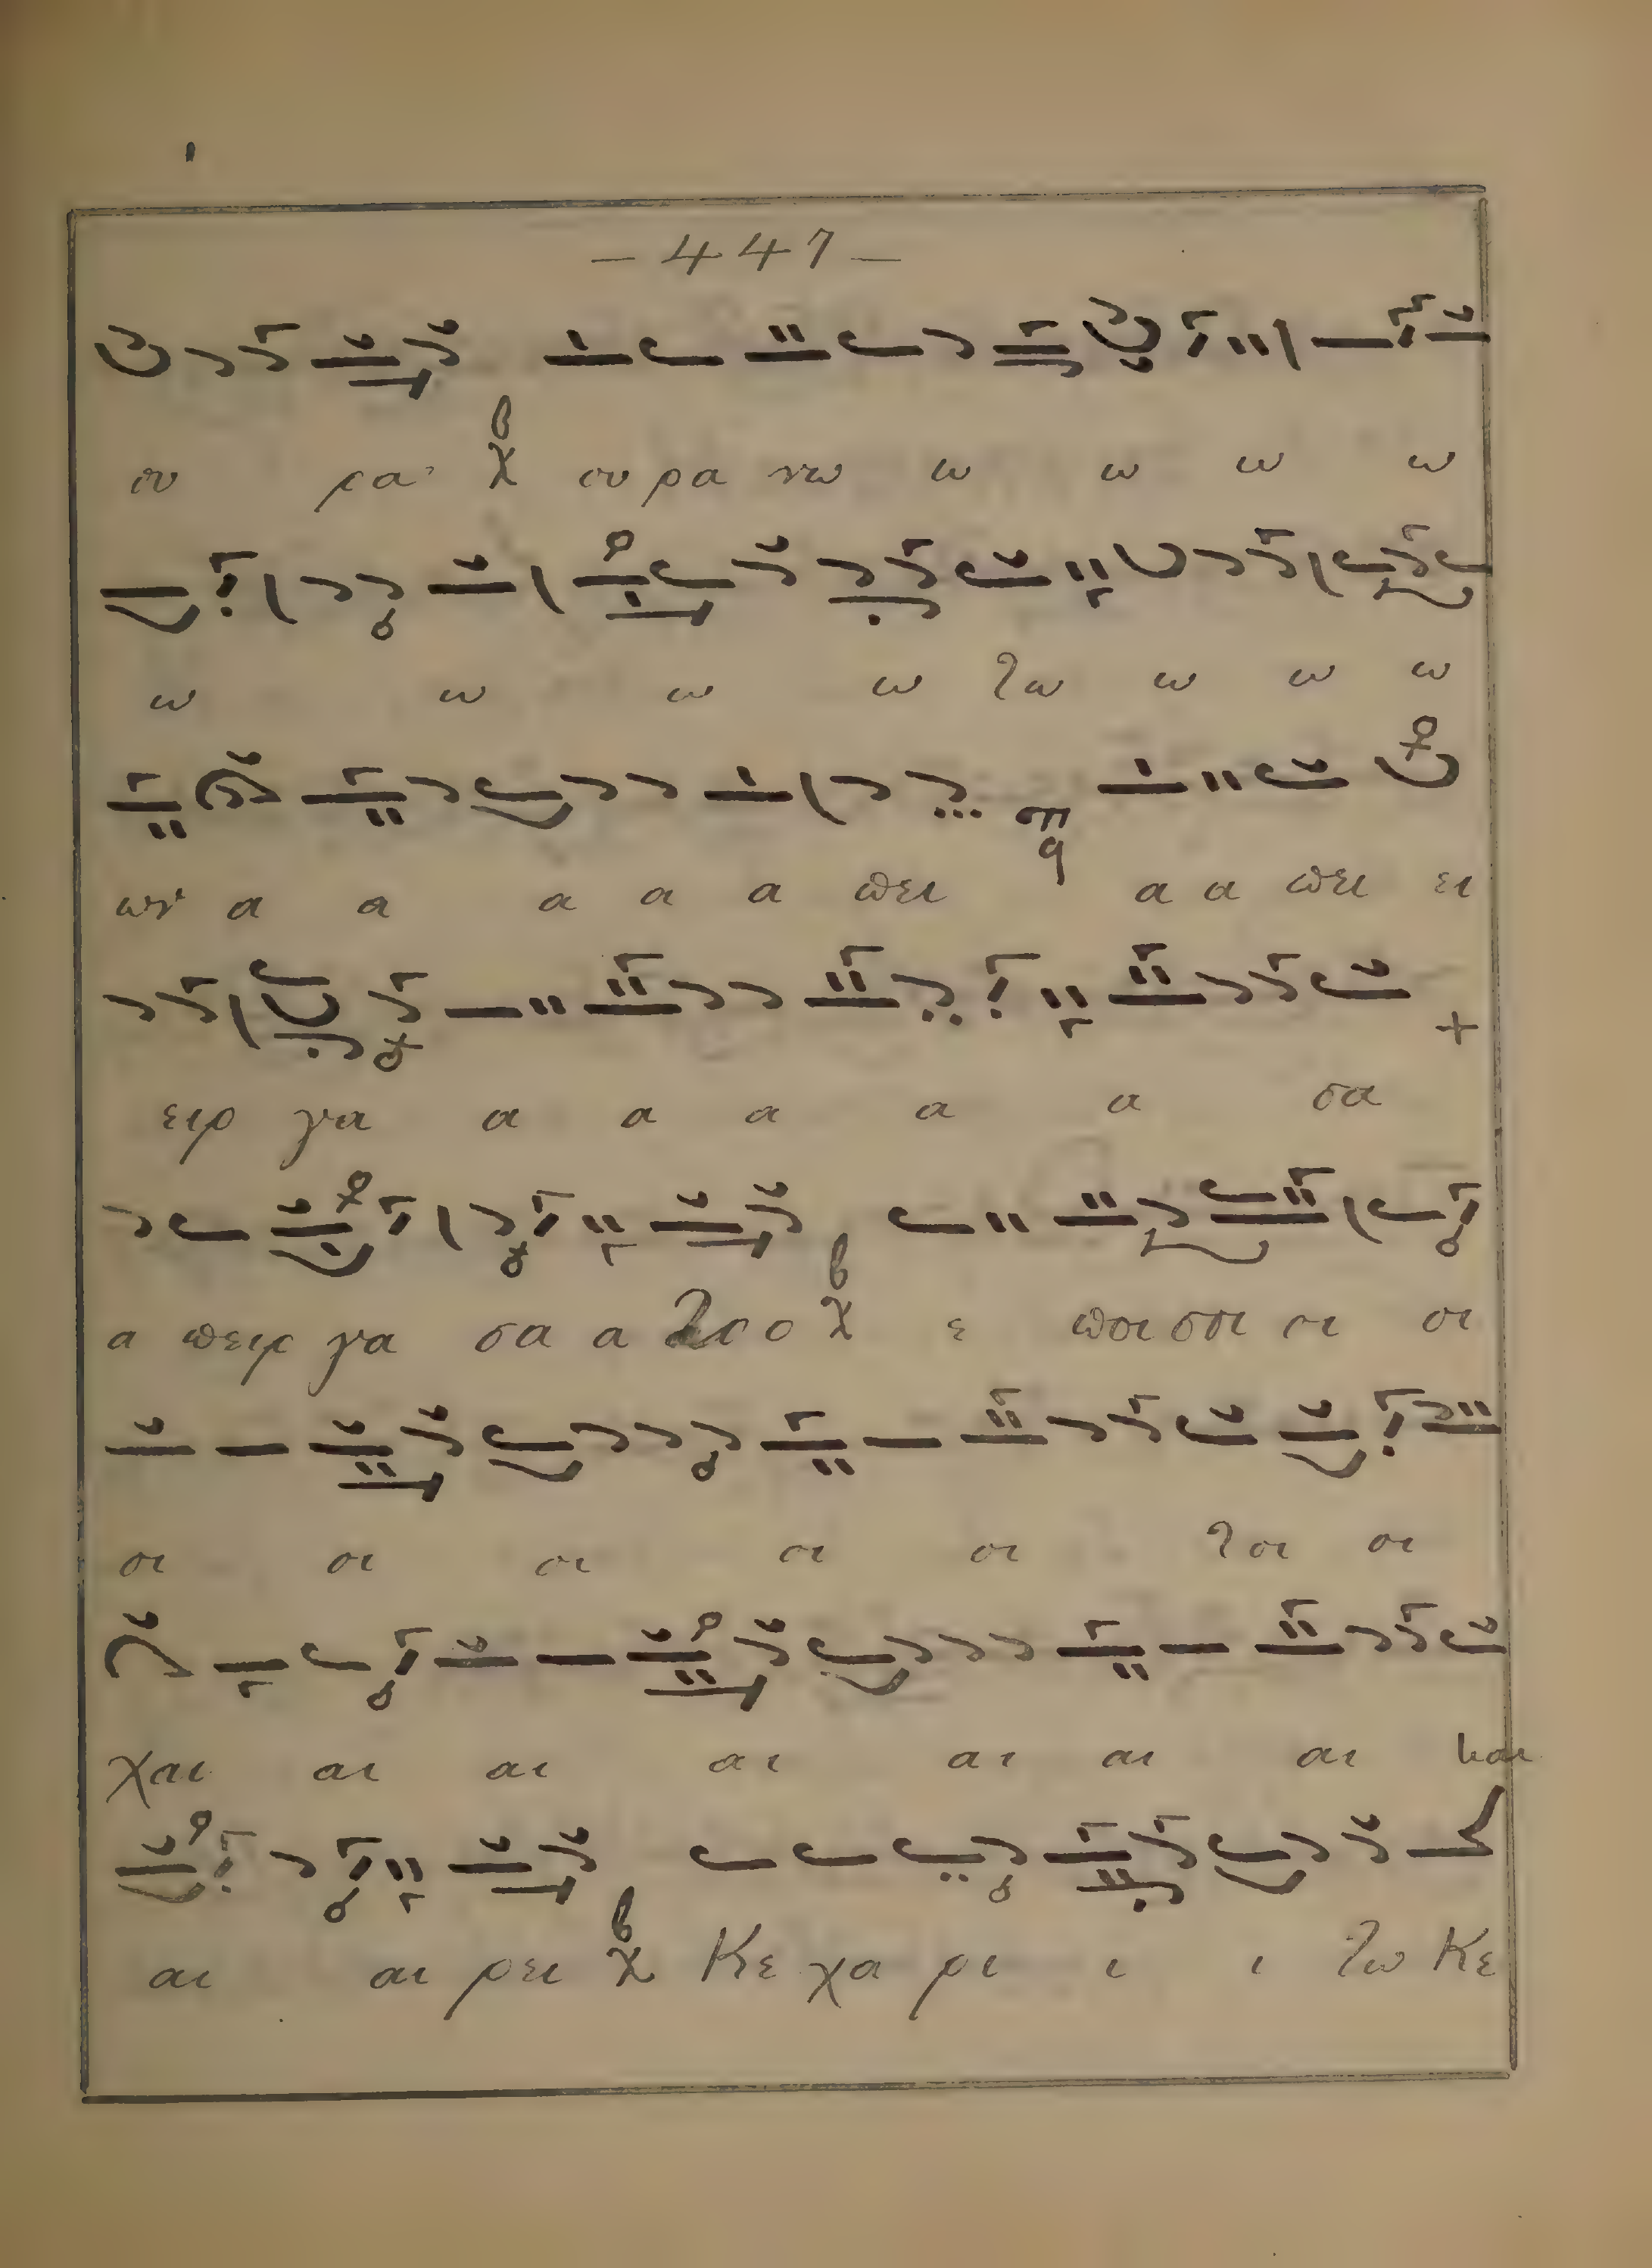 — 447 —
ου ρα χ ου ρα νω ω ω ω ω
ω ω ω ω τω ω ω ω
ων α α α α α πει α α πει ει
ειρ γα α α α α α σα
α πειρ γα σα α το ο χ ε ποι σοι οι οι
οι οι οι οι οι τοι οι
χαι αι αι αι αι αι αι και
αι αι ρει χ Κε χα ρι ι ι τω Κε